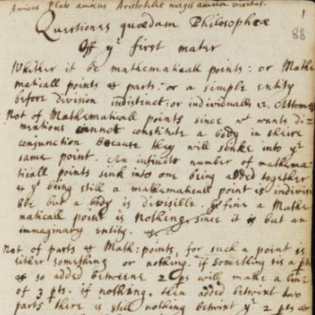 Amicus Plato amicus Aristoteles magis amica veritas.
1
Questiones quædam Philosophcæ
88
Off yᵉ first mater
Whither it be mathematicall points: or Mathe
maticall points & parts: or a simple entity
before division indistinct: or individualls i.e. Attomes
Not of Mathematicall points since wᵗ wants di-
mentions cannot constitute a body in theire
conjunction because they will sinke into yᵉ
same point. An infinite number of mathema-
ticall points sink into one being added together
& yᵗ being still a mathematicall point is indivisi-
ble but a body is divisible. Before a Mathe
maticall point is nothing, since it is but an
immaginary entity.
Not of parts & Math: points, for such a point is
either something or nothing, if something tis a pt
& so added betweene 2 pts will make a line
of 3 pts. if nothing, then added betwixt two
parts there is still nothing betwixt yᵉ 2 pts